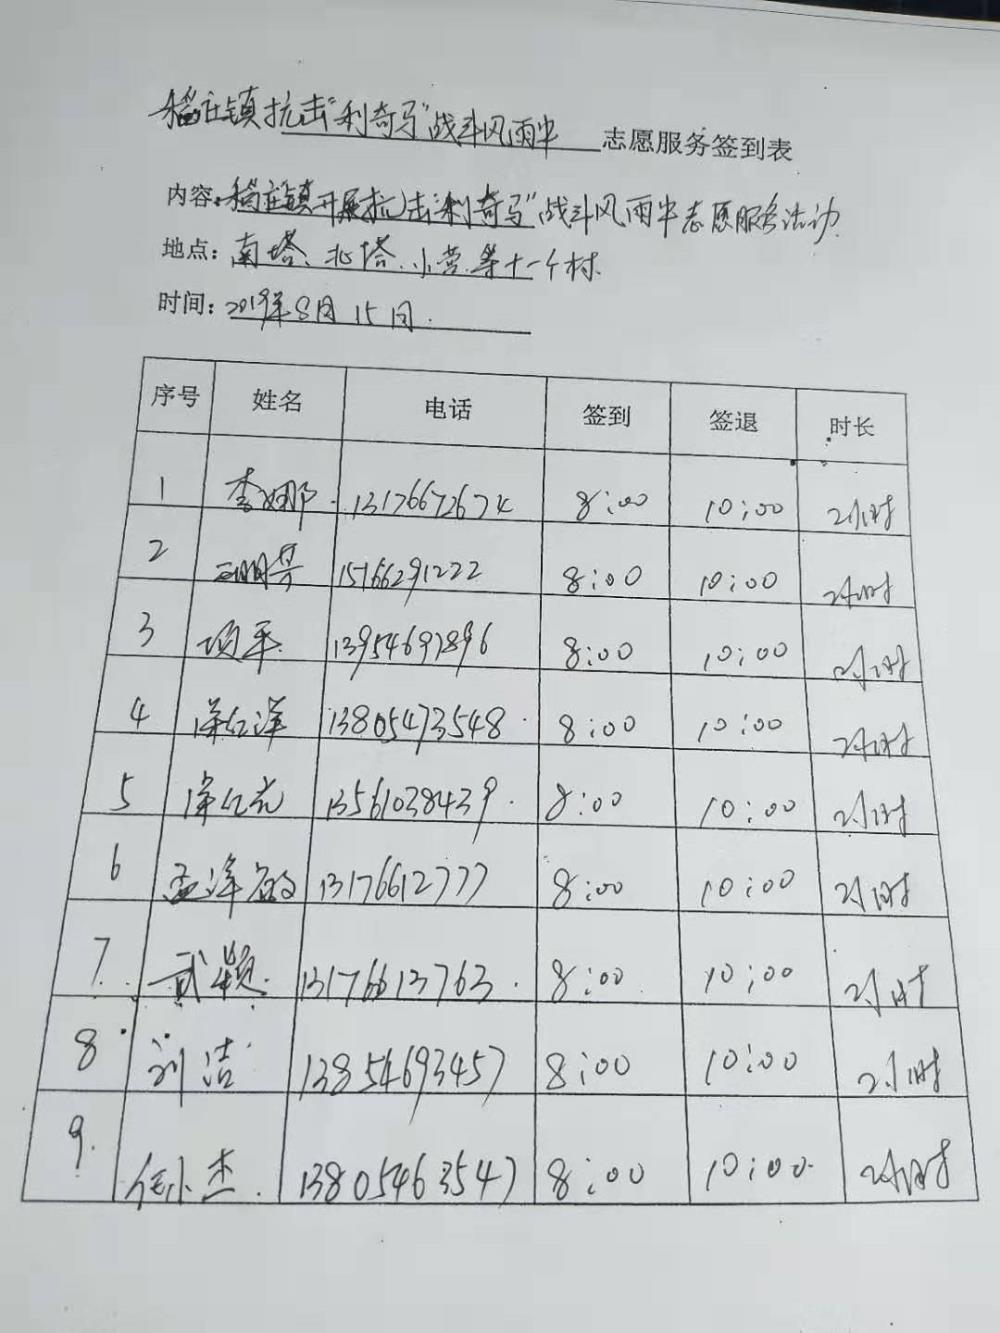 稻庄镇抗击"利奇马"战斗风雨中 志愿服务签到表
内容：稻庄镇开展抗击"利奇马"战斗风雨中志愿服务活动
地点：南塔、北塔、小营等十一个村
时间：2019年8月15日.
序号 姓名 电话 签到 签退 时长
1 李娜 13176672674 8:00 10:00 2小时
2 15166291222 8:00 10:00 2小时
3 项平 13954697896 8:00 10:00 2小时
4 13805473548 8:00 10:00 2小时
5 13561038439 8:00 10:00 2小时
6 13176612777 8:00 10:00 2小时
7 武颖 13176613763 8:00 10:00 2小时
8 刘洁 13854693457 8:00 10:00 2小时
9. 任小杰 13805463547 8:00 10:00 2小时